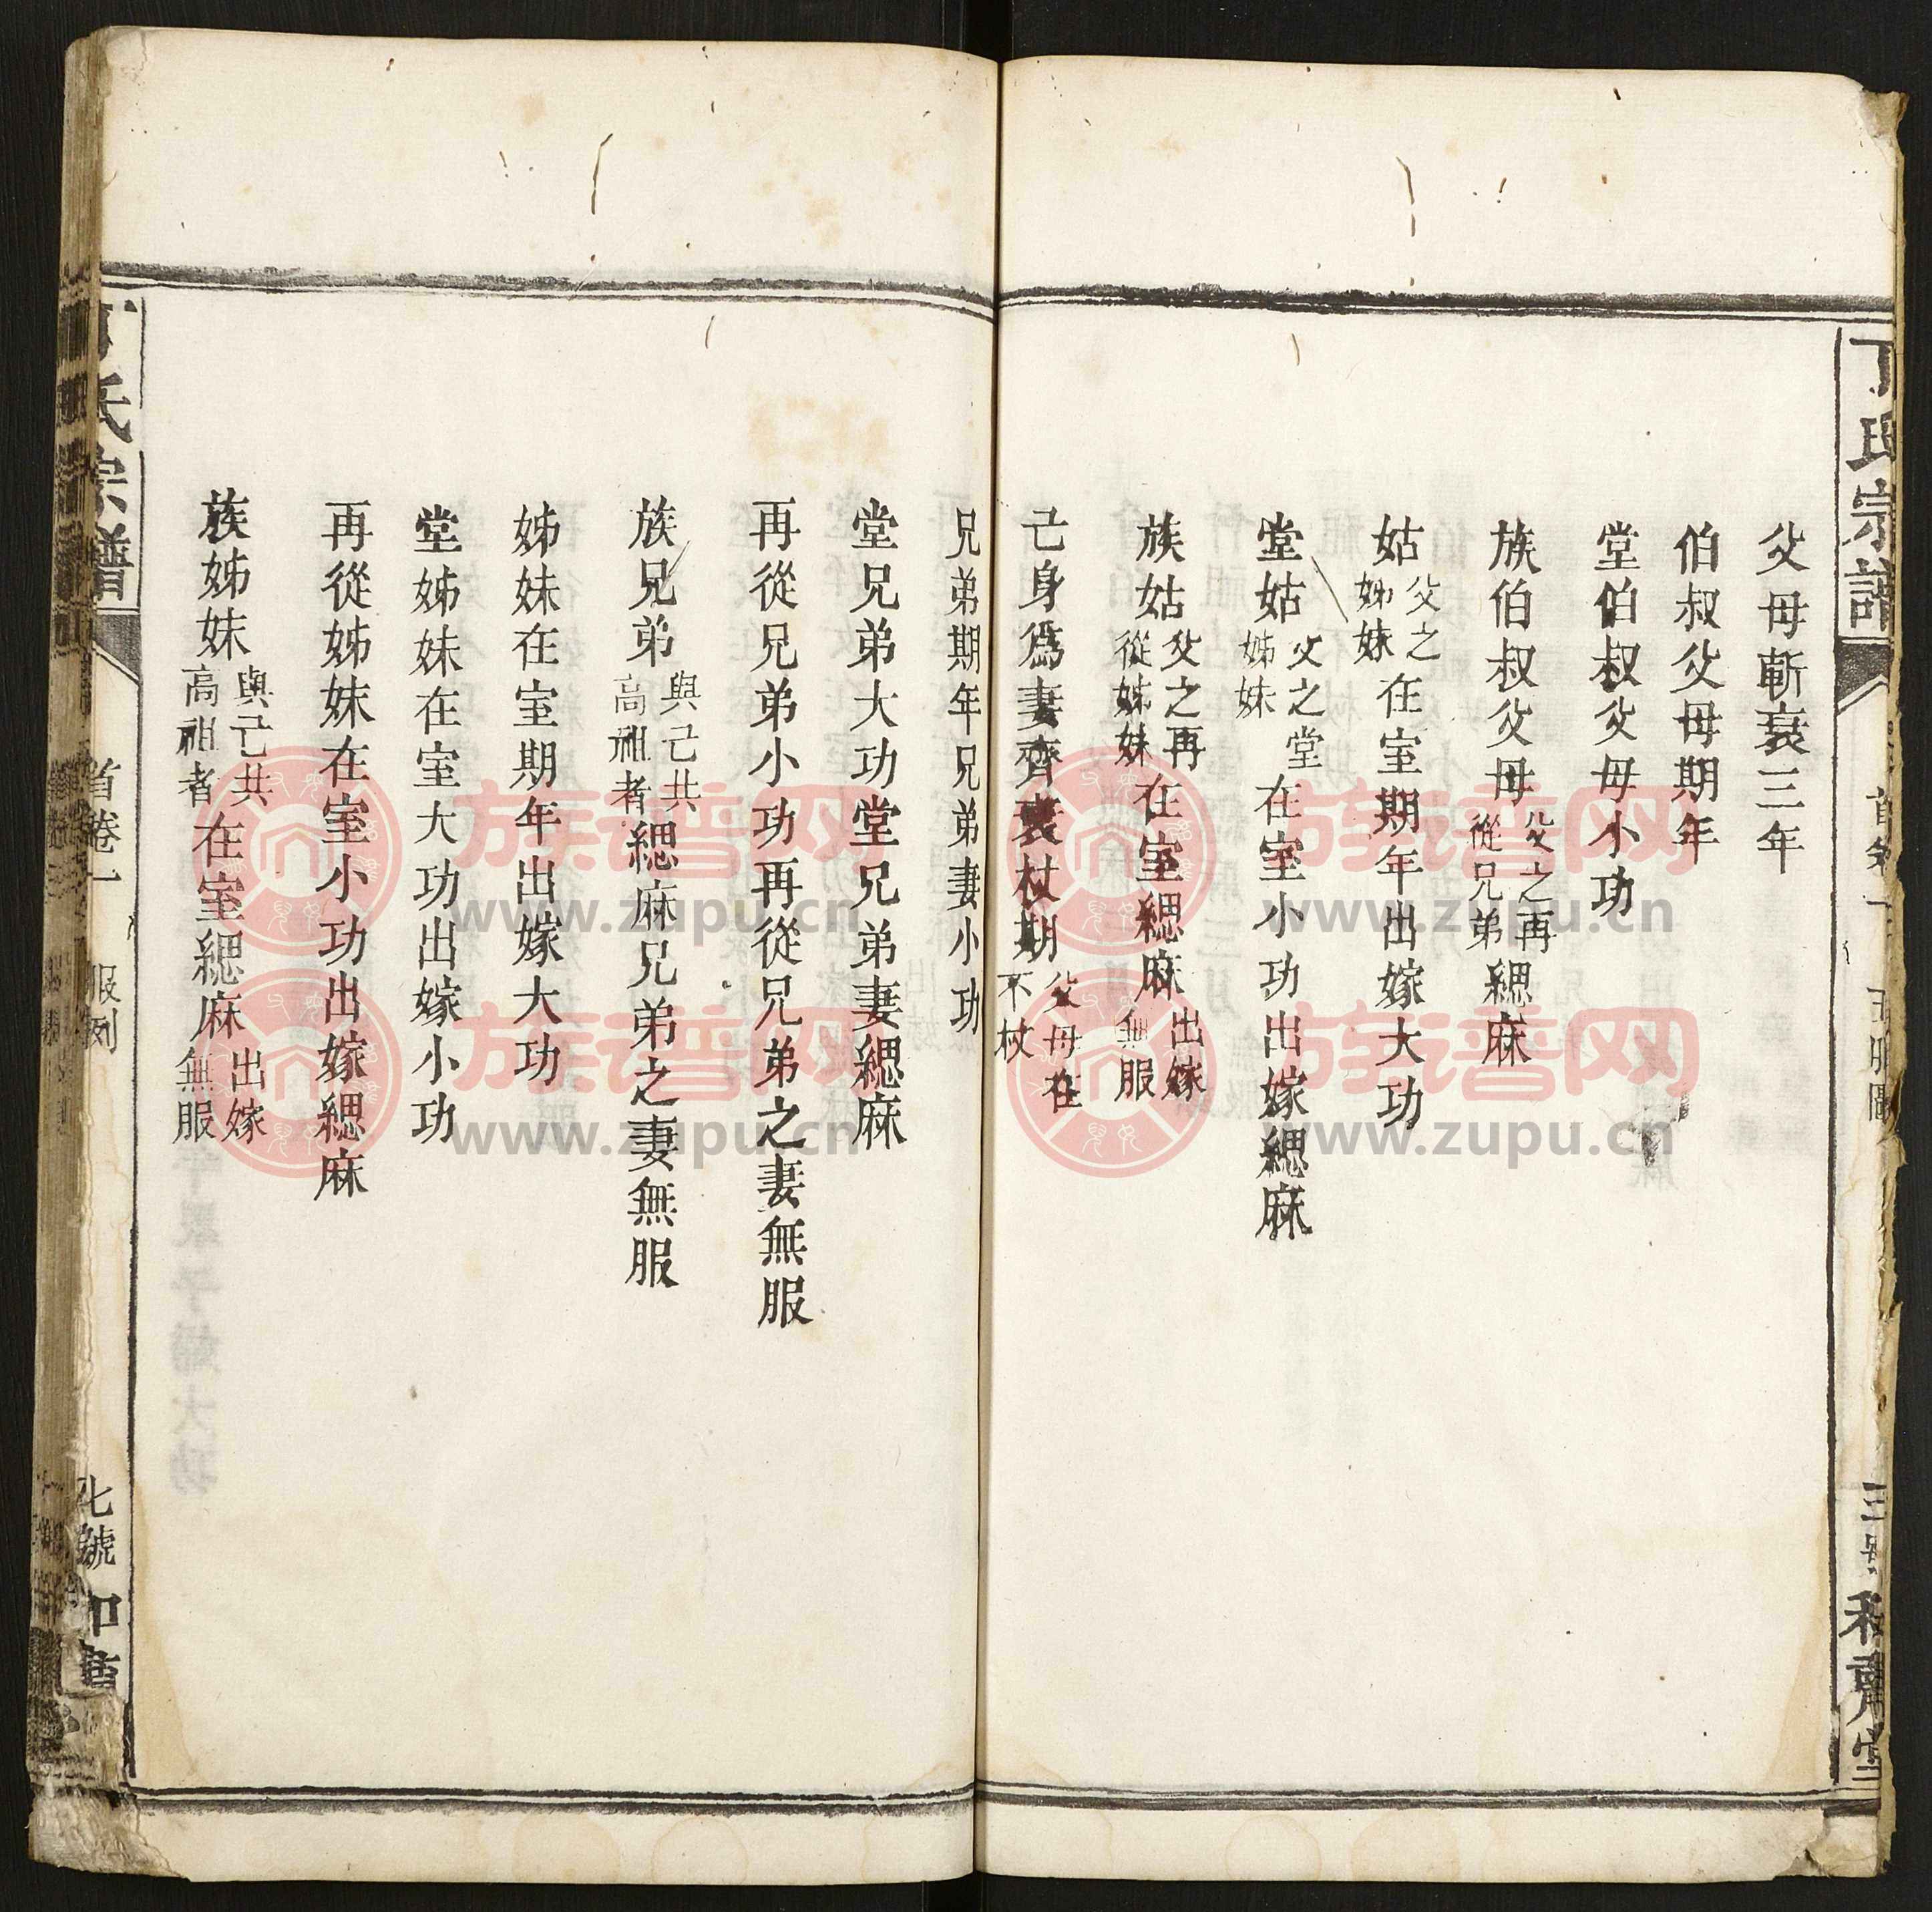 丁氏宗譜
首卷一
五服圖
父母斬衰三年
伯叔父母期年
堂伯叔父母小功
族伯叔父母父之再從兄弟緦麻
姑父之姊妹在室期年出嫁大功
堂姑父之堂姊妹在室小功出嫁緦麻
族姑父之再從姊妹在室緦麻出嫁無服
己身為妻齊衰杖期父母在不杖
兄弟期年兄弟妻小功
堂兄弟大功堂兄弟妻緦麻
再從兄弟小功再從兄弟之妻無服
族兄弟與己共高祖者緦麻兄弟之妻無服
姊妹在室期年出嫁大功
堂姊妹在室大功出嫁小功
再從姊妹在室小功出嫁緦麻
族姊妹與己共高祖者在室緦麻出嫁無服
丁氏宗譜
首卷一
服例
七號
族谱网
www.zupu.cn
族谱网
www.zupu.cn
族谱网
www.zupu.cn
族谱网
www.zupu.cn